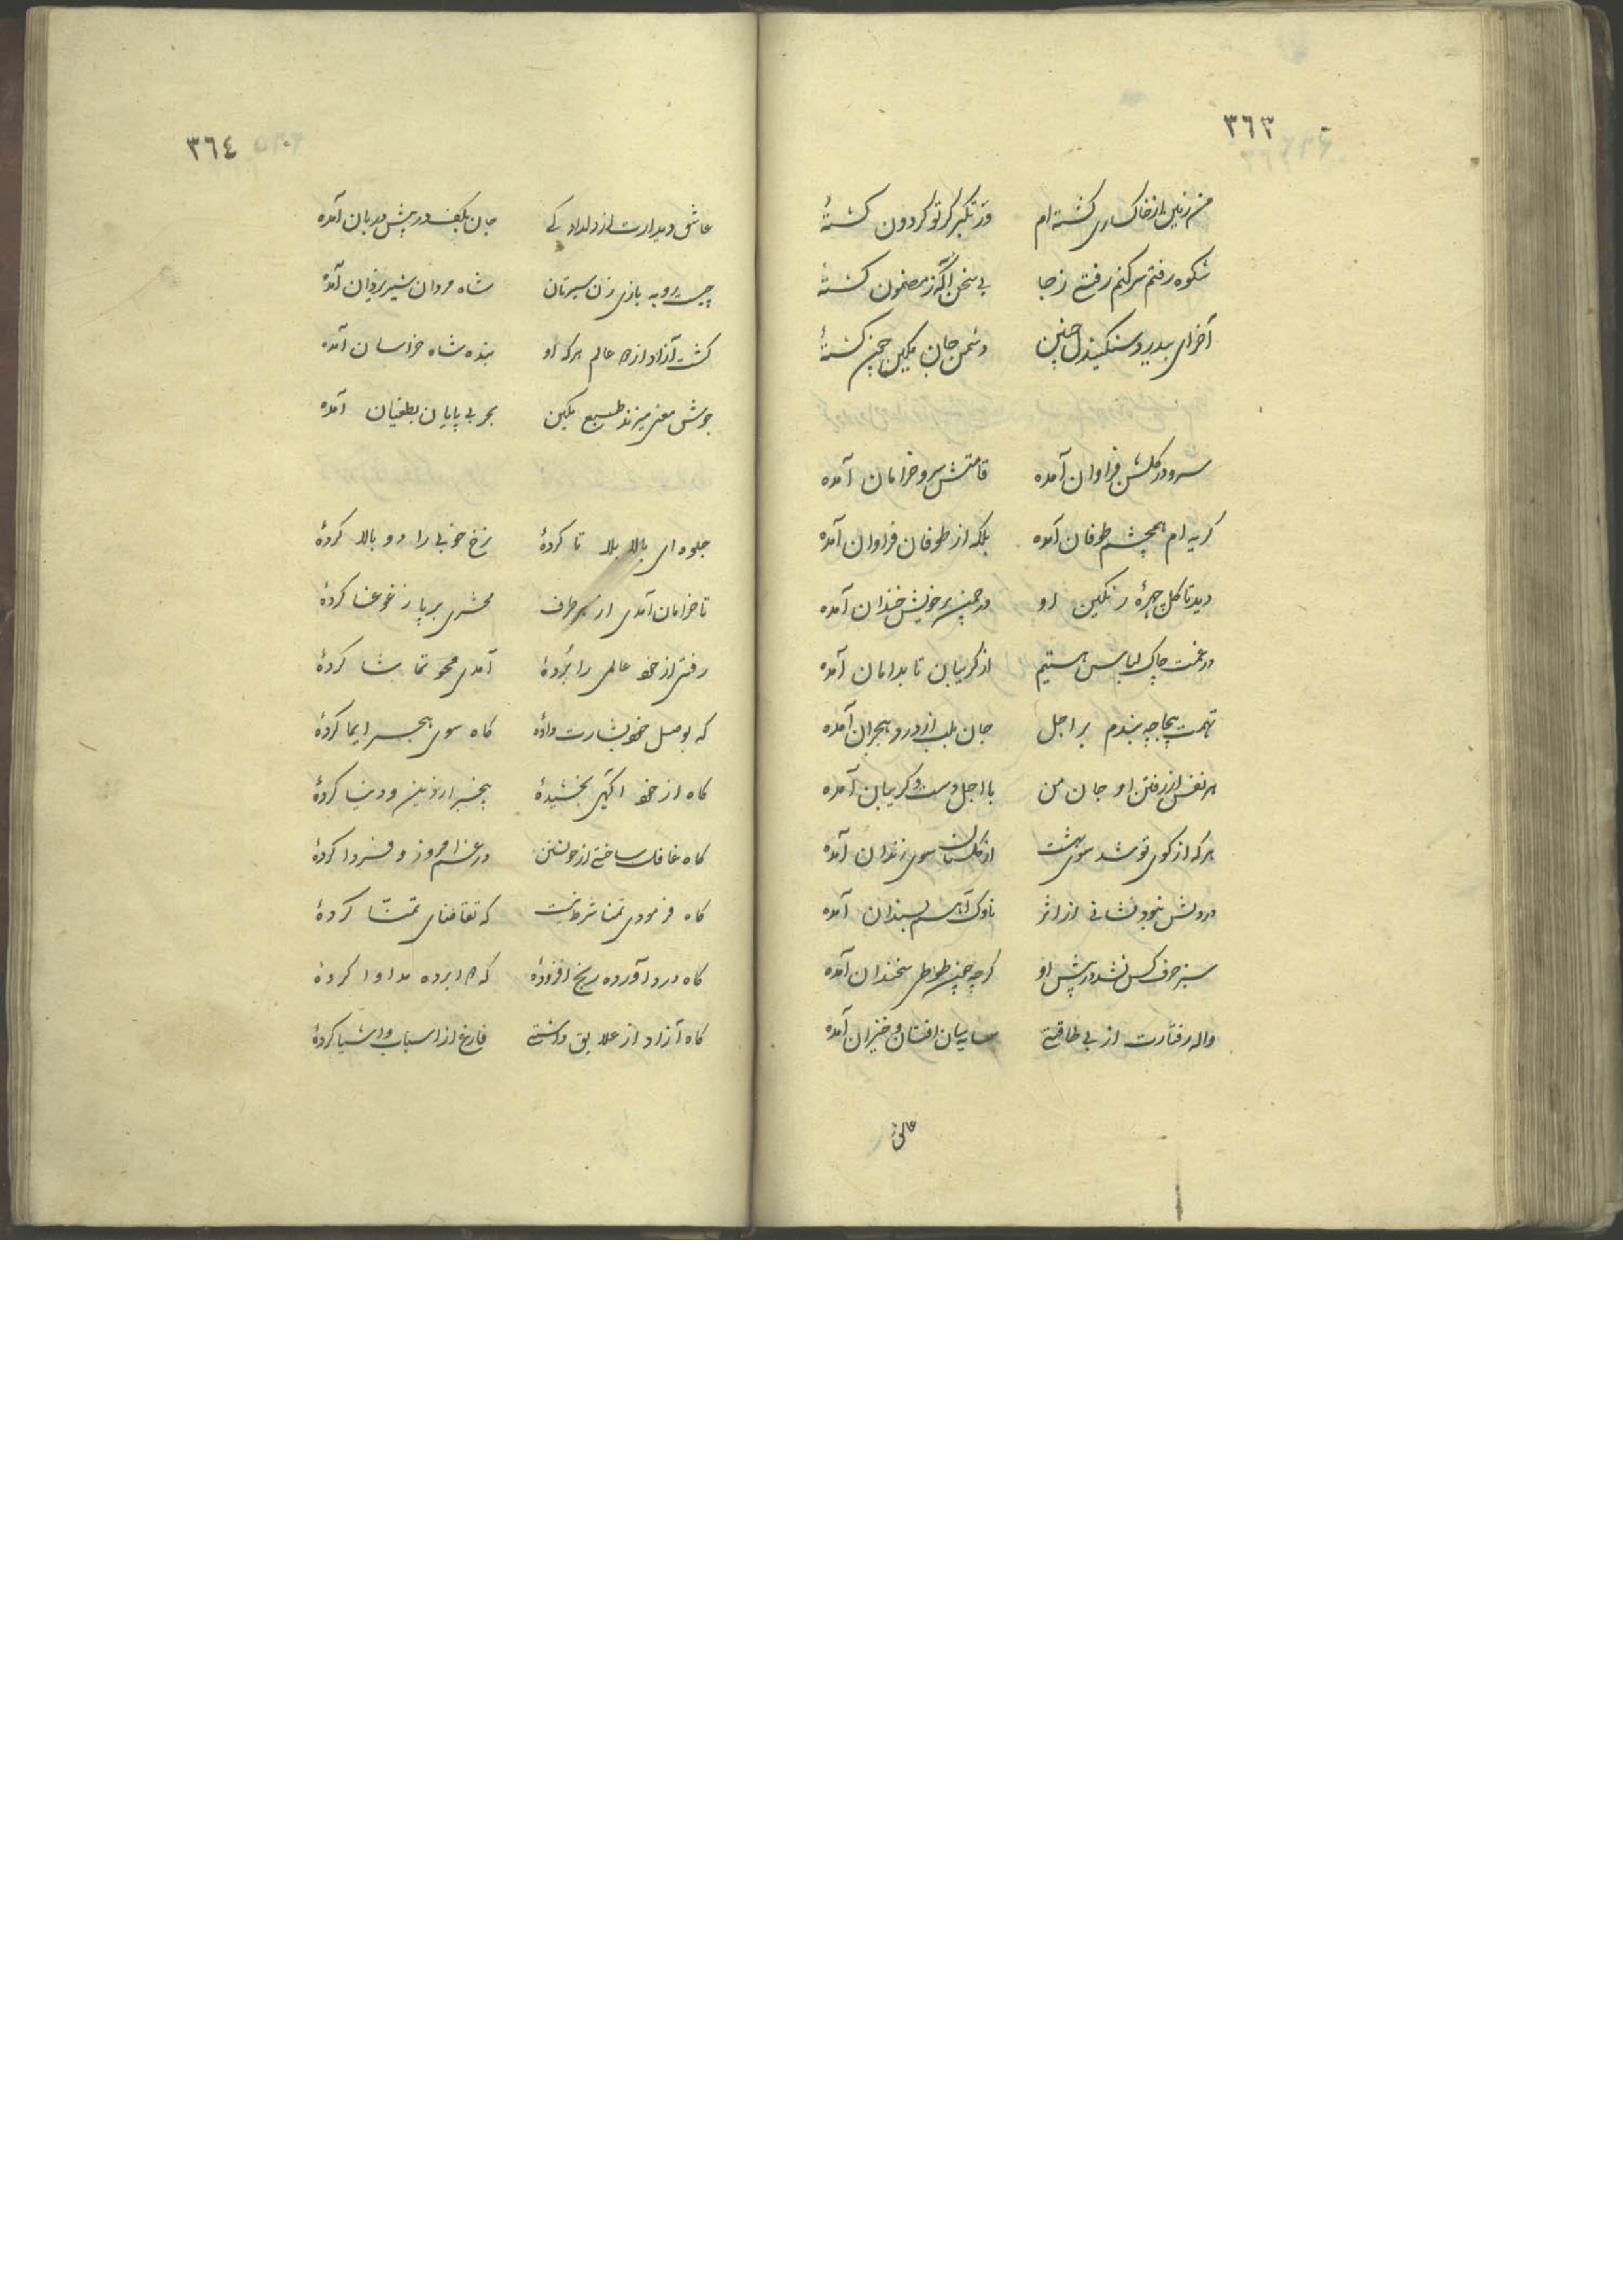 ٣٦٣
من زمین از خاکساری گشته ام ورتکبر کر تو کردون کشتهٔ
شکوه رفتم سر کنم رفتی ز جا بی سخن آکه ز مضمون کشتهٔ
آخر ای بیدرد سنکیندل چنین دشمن جان چنین کشتهٔ
سرو در کلشن فراوان آمده قامتش سرو خرامان آمده
کریه ام همچشم طوفان آمده بلکه از طوفان فراوان آمده
دید تا کل چهرهٔ رنکین او در چمن بر خویش خندان آمده
در غمت چاک لباس هستیم از کریبان تا بدامان آمده
تهمت بیجا چه بندم بر اجل جان بلب از درد هجران آمده
هر نفس از رفتن او جان من با اجل دست و کریبان آمده
هر که از کوی تو شد سوی بهشت از کلستان سوی زندان آمده
در دلش نبود نشانی از اثر ناوک آهم بسندان آمده
سبز حرف کس نشد در پیش او کر چه چون طوطی سخندان آمده
واله رفتارت از بی طاقتی سایه سان افتان و خیزان آمده
٣٦٤
عاشق دیدارت از دلداد کی جان بکف در پیش دربان آمده
چیست روبه بازی زن سیرتان شاه مردان شیر یزدان آمده
کشت آزاد از عالم هر که او بنده شاه خراسان آمده
جوش معنی میزند طبع بحر بی پایان بطغیان آمده
جلوه ای بالا بلا تا کردهٔ نرخ خوبی را دو بالا کردهٔ
تا خرامان آمدی از هر طرف محشری بر پا ز غوغا کردهٔ
رفتی از خود عالمی را بردهٔ آمدی محو تماشا کردهٔ
که بوصل خود بشارت دادهٔ کاه سوی هجر ایما کردهٔ
کاه از خود آکهی بخشیدهٔ بیخبر از دین و دنیا کردهٔ
کاه غافل ساختی از خویشتن در غم امروز و فردا کردهٔ
کاه فرمودی تمنا شرط نیست که تقاضای تمنّا کردهٔ
کاه درد آورده رنج افزودهٔ که برده مداوا کردهٔ
کاه آزاد از علایق داشتی فارغ از اسباب و اشیا کردهٔ